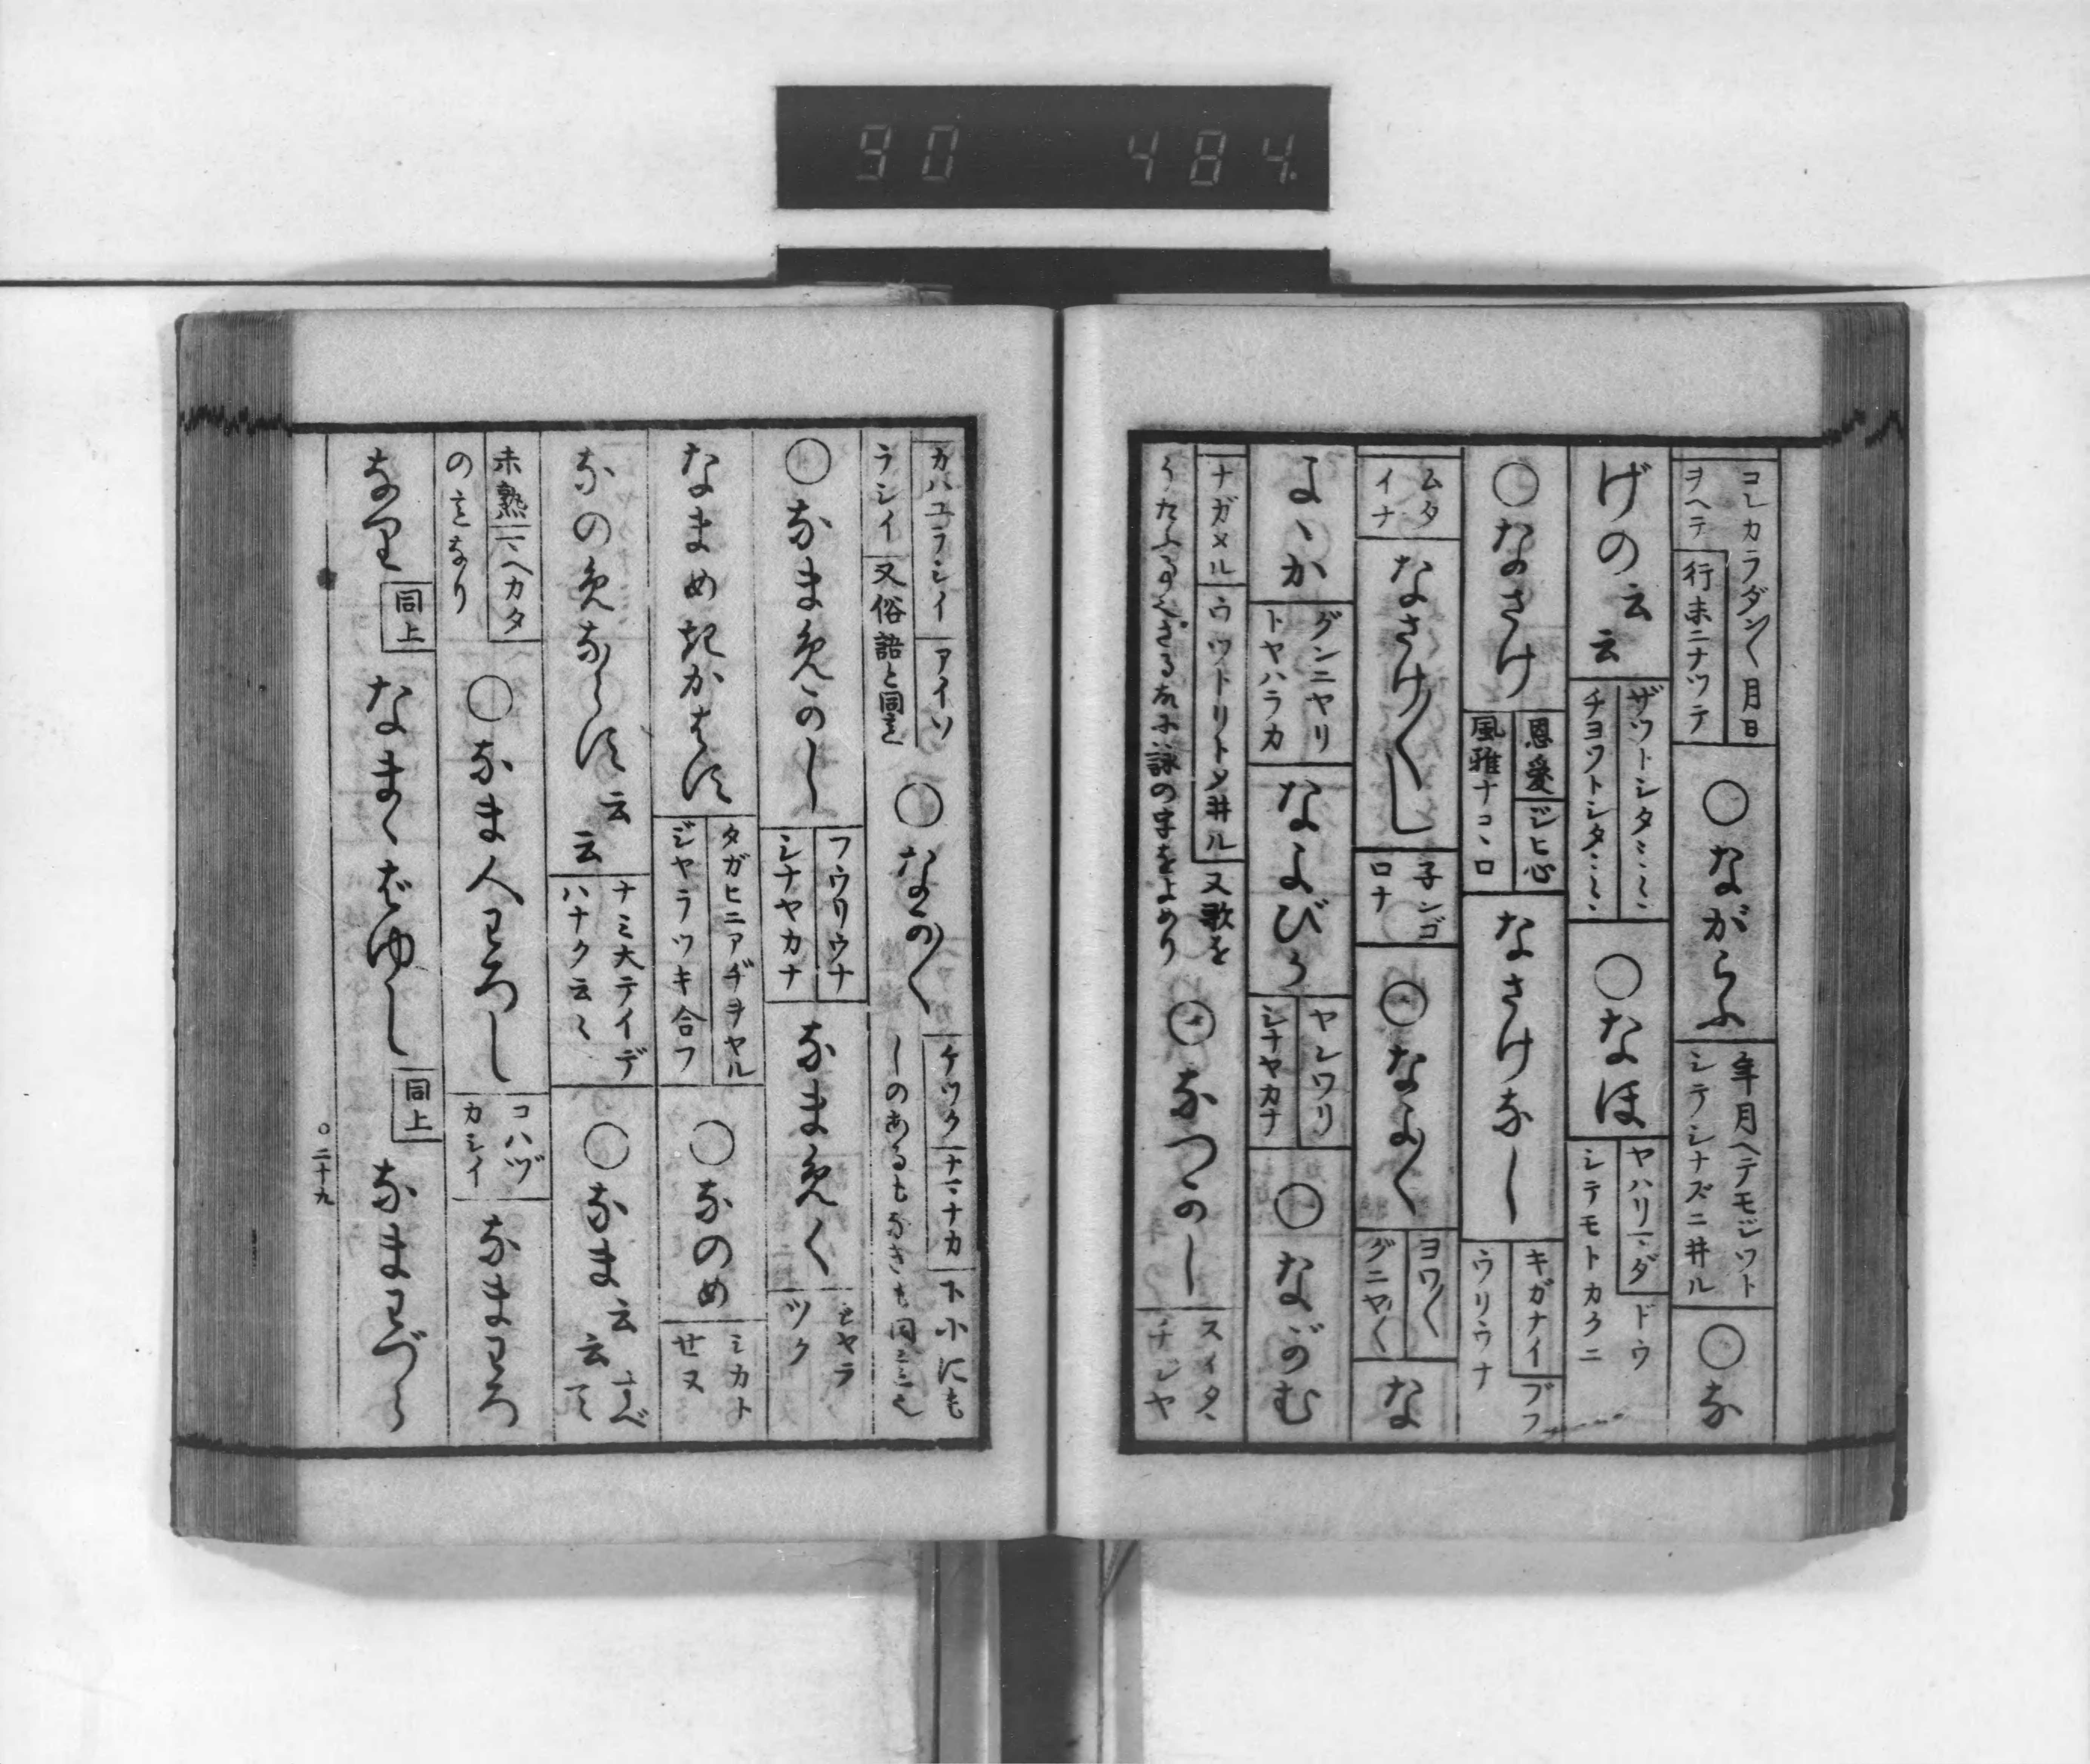 90 484
コレカラダン〳〵月日
ヲヘテ 行末ニナツテ
○ながらふ
年月ヘテモジツト
シテシナズニ井ル
○な
げの云云
ザツトシタミ〳〵
チヨツトシタミ〳〵
○なほ
ヤハリマダ ドウ
シテモトカクニ
○なさけ
恩愛 ジヒ心
風雅ナコヽロ
なさけなし
キガナイ ブフ
ウリウナ
ムタ
イナ
なさけ〳〵し
子ンゴ
ロナ
○なよ〳〵
ヨワ〳〵
グニヤ〳〵
な
よゝか
グンニヤリ
トヤハラカ
なよびか
ヤンワリ
シナヤカナ
○ながむ
ナガメル ウツトリトタ井ル 又歌を
詠の字をよめり
○なつかし
スイタ
チシヤ
カハユラシイ アイソ
ラシイ 又俗語と同じ
○なか〳〵
ケツク ナマナカ 下小にも
しのあるもなきも同じ
○なまめかし
フウリウナ
シナヤカナ
なまめく
ジヤラ
ツク
なまめきかはす
タガヒニアヂヲヤル
ジヤラツキ合フ
○なのめ
ミカト
せヌ
なのめならず云云
ナミ大テイデ
ハナク云〻
○なま云云
すべて
未熟 マヘカタ
のことなり
○なま人わろし
コハヅ
カシイ
なまわろ
なり
同上
なまくばゆし
同上
なまわづら
○二十九